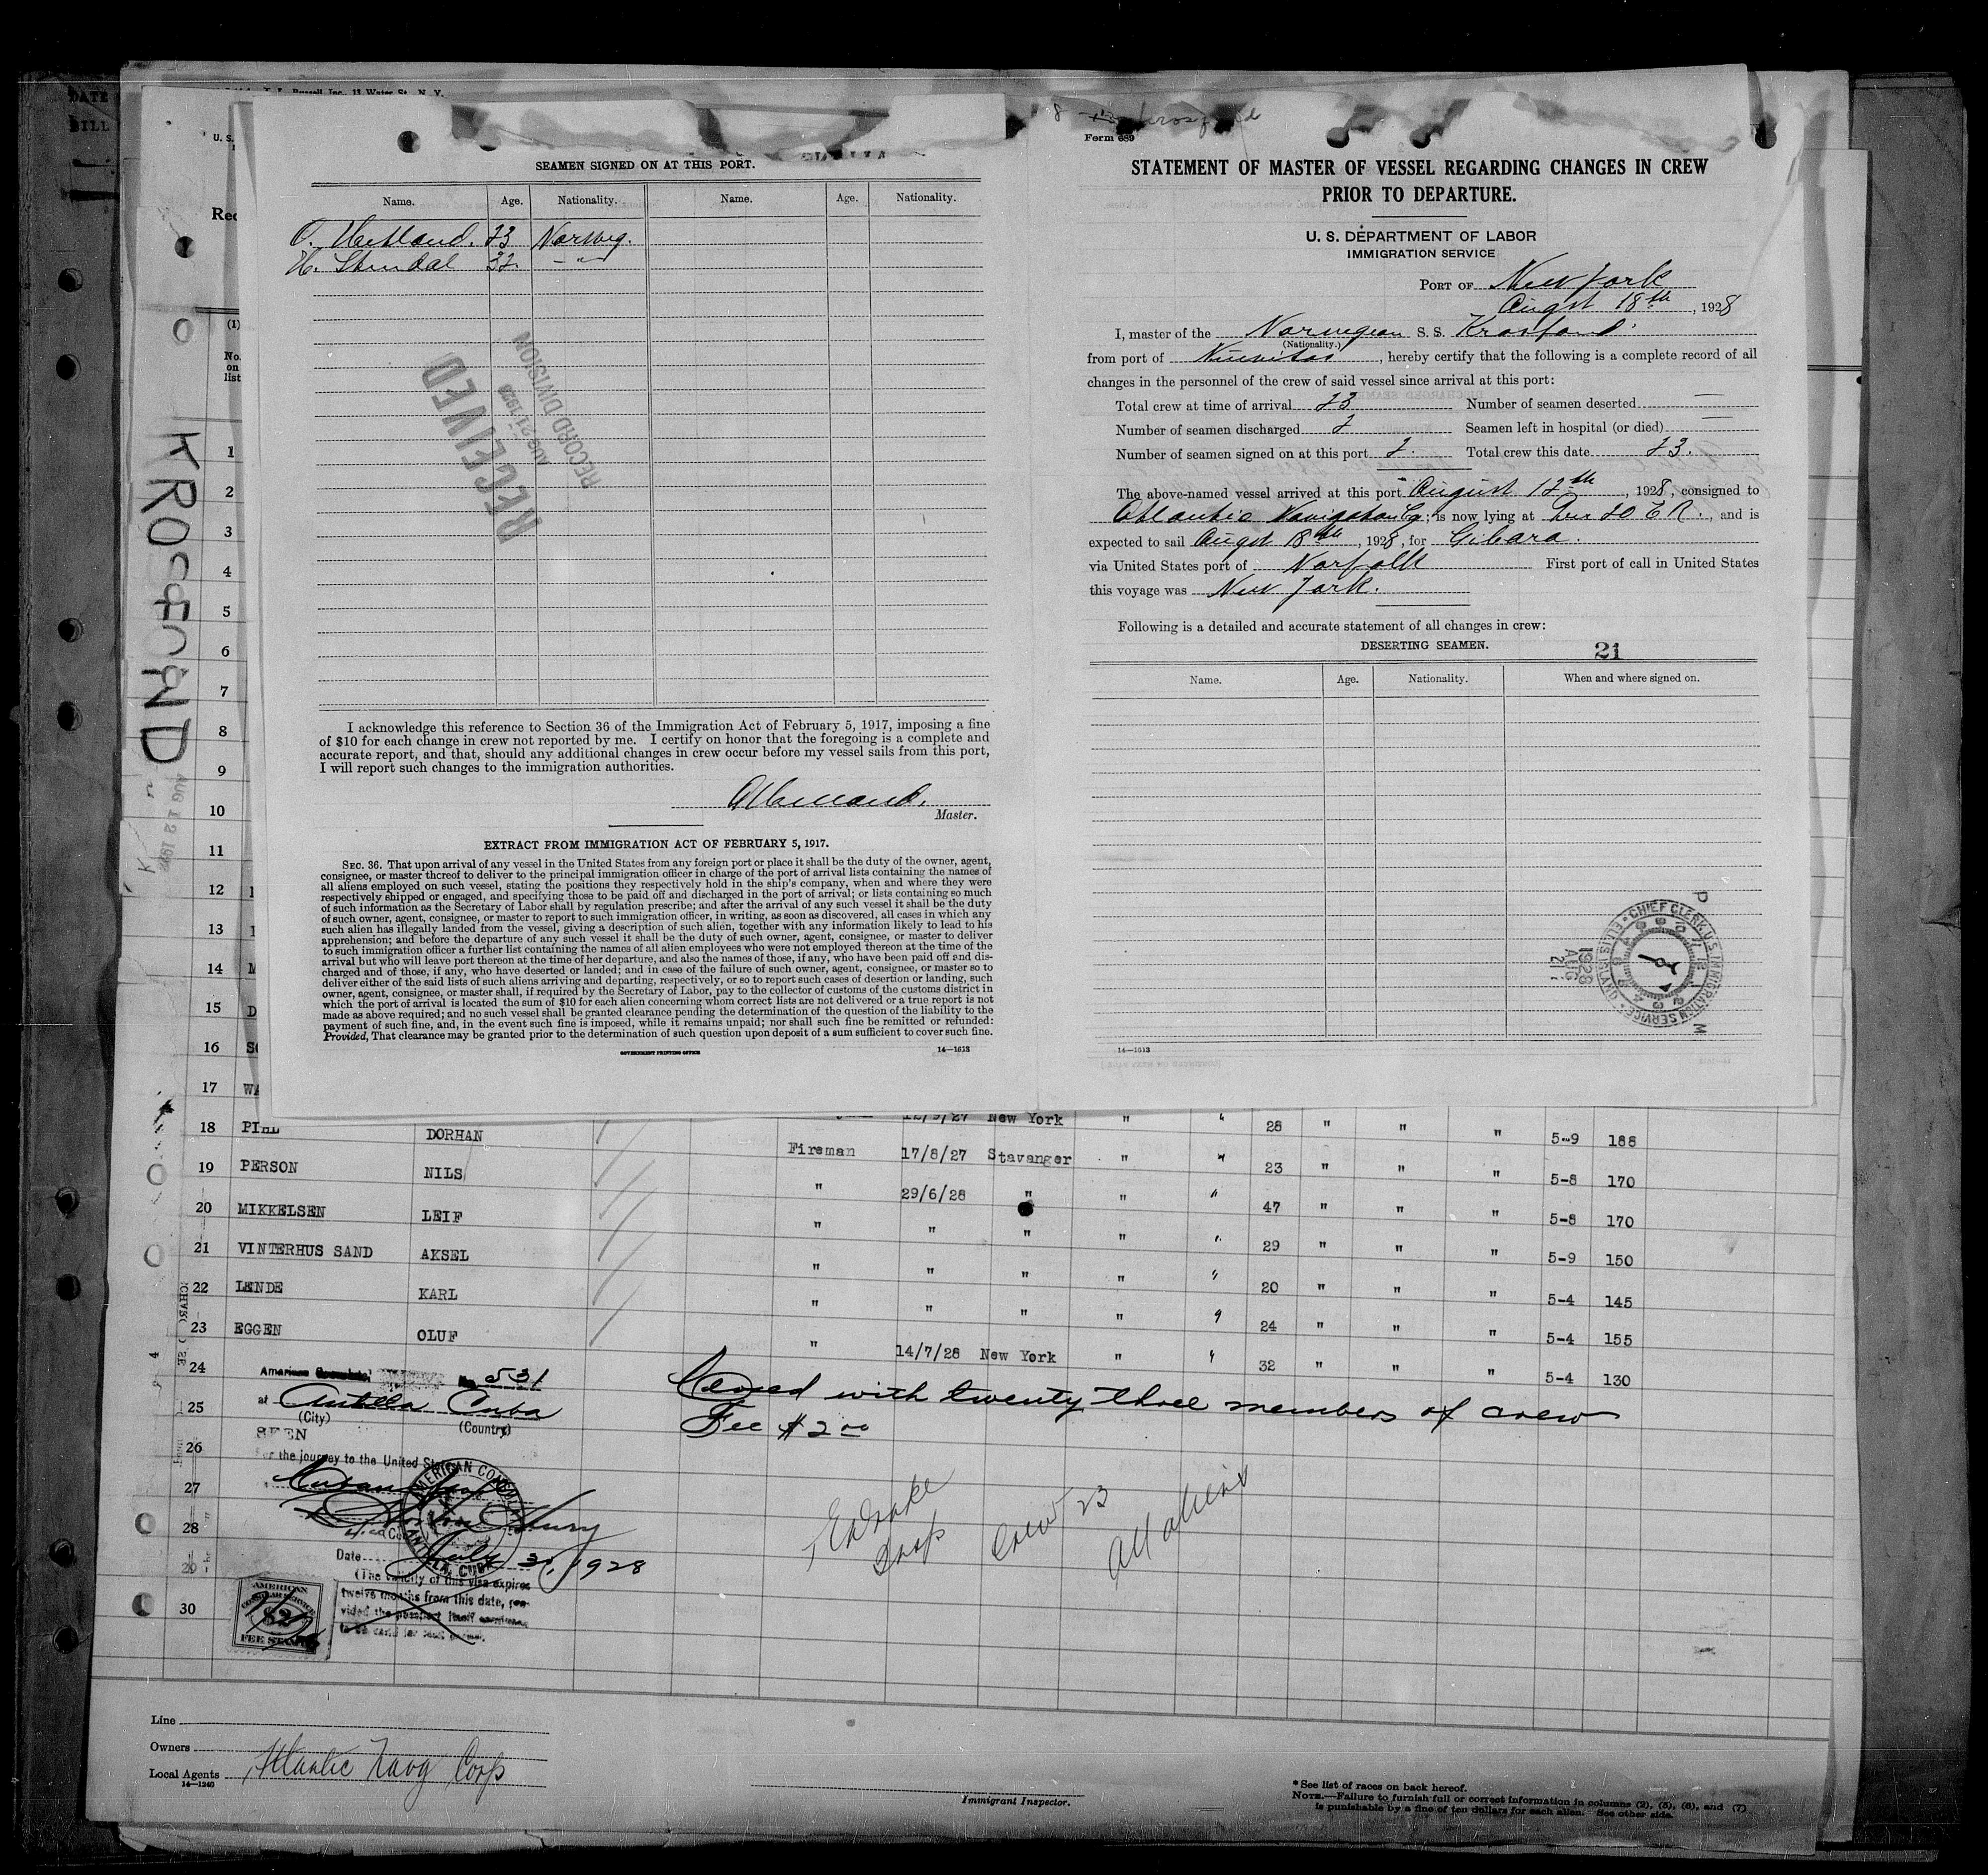 DATE
BILL
Inc., 13 Water St., N. Y.
U. S.
Rec
(1)
No. on list
KROSFOND
AUG 12 192
SEAMEN SIGNED ON AT THIS PORT.
Name. Age. Nationality. Name. Age. Nationality.
O. Hetland. 23 Norweg.
H. Stendal 32. -"-
RECEIVED
AUG 21 1928
RECORD DIVISION
I acknowledge this reference to Section 36 of the Immigration Act of February 5, 1917, imposing a fine
of $10 for each change in crew not reported by me. I certify on honor that the foregoing is a complete and
accurate report, and that, should any additional changes in crew occur before my vessel sails from this port,
I will report such changes to the immigration authorities.
Master.
EXTRACT FROM IMMIGRATION ACT OF FEBRUARY 5, 1917.
SEC. 36. That upon arrival of any vessel in the United States from any foreign port or place it shall be the duty of the owner, agent,
consignee, or master thereof to deliver to the principal immigration officer in charge of the port of arrival lists containing the names of
all aliens employed on such vessel, stating the positions they respectively hold in the ship's company, when and where they were
respectively shipped or engaged, and specifying those to be paid off and discharged in the port of arrival; or lists containing so much
of such information as the Secretary of Labor shall by regulation prescribe; and after the arrival of any such vessel it shall be the duty
of such owner, agent, consignee, or master to report to such immigration officer, in writing, as soon as discovered, all cases in which any
such alien has illegally landed from the vessel, giving a description of such alien, together with any information likely to lead to his
apprehension; and before the departure of any such vessel it shall be the duty of such owner, agent, consignee, or master to deliver
to such immigration officer a further list containing the names of all alien employees who were not employed thereon at the time of the
arrival but who will leave port thereon at the time of her departure, and also the names of those, if any, who have been paid off and dis-
charged and of those, if any, who have deserted or landed; and in case of the failure of such owner, agent, consignee, or master so to
deliver either of the said lists of such aliens arriving and departing, respectively, or so to report such cases of desertion or landing, such
owner, agent, consignee, or master shall, if required by the Secretary of Labor, pay to the collector of customs of the customs district in
which the port of arrival is located the sum of $10 for each alien concerning whom correct lists are not delivered or a true report is not
made as above required; and no such vessel shall be granted clearance pending the determination of the question of the liability to the
payment of such fine, and, in the event such fine is imposed, while it remains unpaid; nor shall such fine be remitted or refunded:
Provided, That clearance may be granted prior to the determination of such question upon deposit of a sum sufficient to cover such fine.
GOVERNMENT PRINTING OFFICE 14—1613
Form 689
STATEMENT OF MASTER OF VESSEL REGARDING CHANGES IN CREW
PRIOR TO DEPARTURE.
U. S. DEPARTMENT OF LABOR
IMMIGRATION SERVICE
PORT OF New York
Augst 18th, 1928
I, master of the Norwegian S. S. Krosfond.
(Nationality.)
from port of Nuevitas, hereby certify that the following is a complete record of all
changes in the personnel of the crew of said vessel since arrival at this port:
Total crew at time of arrival 23 Number of seamen deserted —
Number of seamen discharged 2 Seamen left in hospital (or died) —
Number of seamen signed on at this port 2. Total crew this date 23.
The above-named vessel arrived at this port August 12th, 1928, consigned to
Atlantic Navigation Co; is now lying at Pier 20 E R., and is
expected to sail Augst 18th, 1928, for Gibara.
via United States port of Norfolk First port of call in United States
this voyage was New York.
Following is a detailed and accurate statement of all changes in crew:
DESERTING SEAMEN. 21
Name. Age. Nationality. When and where signed on.
CHIEF CLERK, U.S. IMMIGRATION SERVICE ELLIS ISLAND
1928 AUG 21
P M
14—1613
1
2
3
4
5
6
7
8
9
10
11
12
13
14 M
15 D
16 SO
17 WA 12/9/27 New York " "
18 PIHL DORHAN Fireman 17/8/27 Stavanger " " 28 " " " 5-9 188
19 PERSON NILS " 29/6/28 " " " 23 " " " 5-8 170
20 MIKKELSEN LEIF " " " " " 47 " " " 5-8 170
21 VINTERHUS SAND AKSEL " " " " " 29 " " " 5-9 150
22 LENDE KARL " " " " " 20 " " " 5-4 145
23 EGGEN OLUF " 14/7/28 New York " " 24 " " " 5-4 155
24 32 " " " 5-4 130
American No. 531
25 at Antilla Cuba
(City) (Country)
Closed with twenty three members of crew
Fee $2.00
SEEN
26 For the journey to the United States
27
28
AMERICAN CONSUL ANTILLA, CUBA
29 Date July 31, 1928
(The validity of this visa expires
twelve months from this date, pro-
vided the passport itself continues
to be valid for that period.
30
AMERICAN CONSULAR SERVICE $2 FEE STAMP
Crew 23
Line
Owners
Local Agents Atlantic Navg Corp
14—1240
Immigrant Inspector.
* See list of races on back hereof.
NOTE.—Failure to furnish full or correct information in columns (2), (5), (6), and (7)
is punishable by a fine of ten dollars for each alien. See other side.